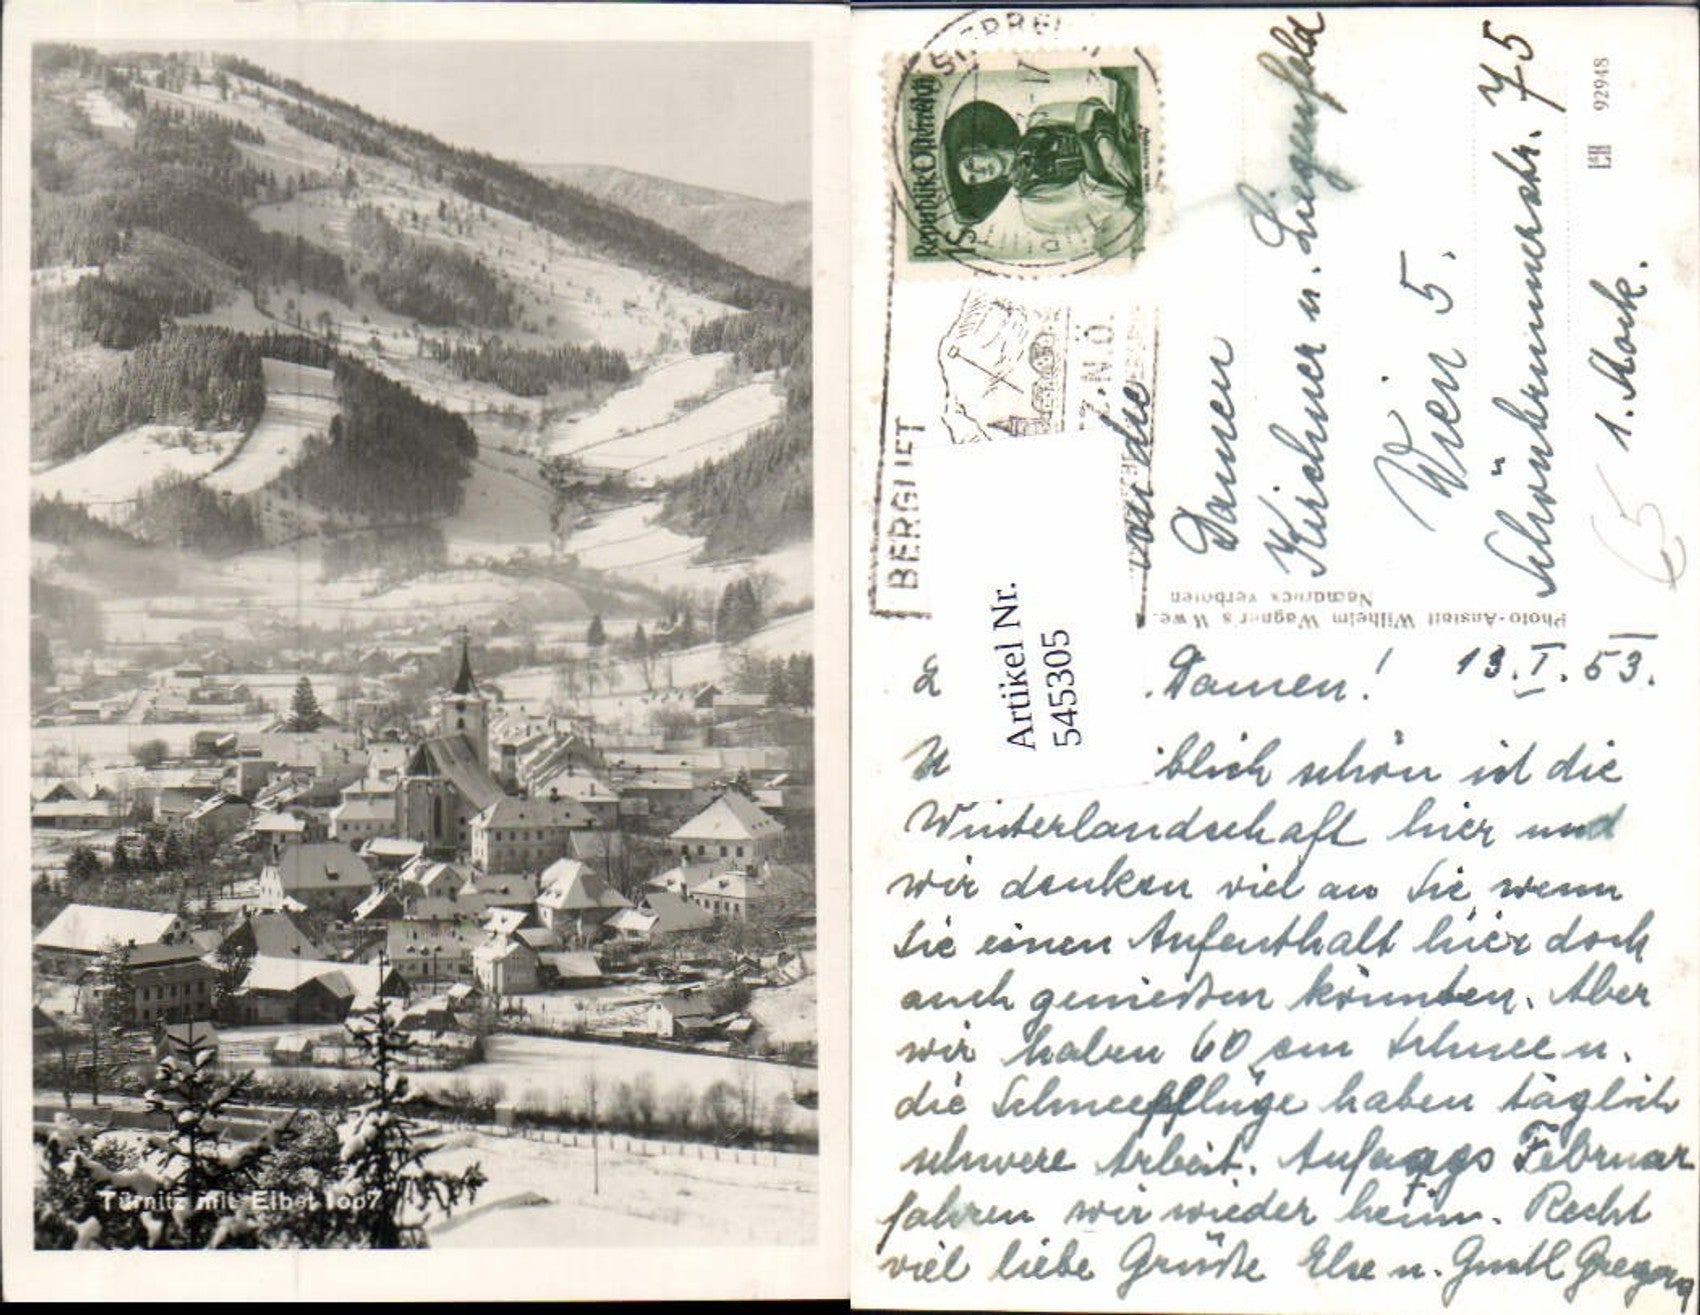 Türnitz mit Eibel 1007
Republik Österreich
BERGLIFT
Z.N.Ö.
Artikel Nr.
545305
An die
Damen
Kirchner u. Liegenfeld
Wien 5.
Schönbrunnerstr. 75
1. Stock.
65
92948
Photo-Anstalt Wilhelm Wagner's Wwe.
Nachdruck verboten
Damen! 13.I.53.
blich schön ist die
Winterlandschaft hier und
wir denken viel an Sie, wenn
Sie einen Aufenthalt hier doch
auch genießen könnten. Aber
wir haben 60 cm Schnee u.
die Schneepflüge haben täglich
schwere Arbeit. Anfangs Februar
fahren wir wieder heim. Recht
viel liebe Grüße Else u. Gustl